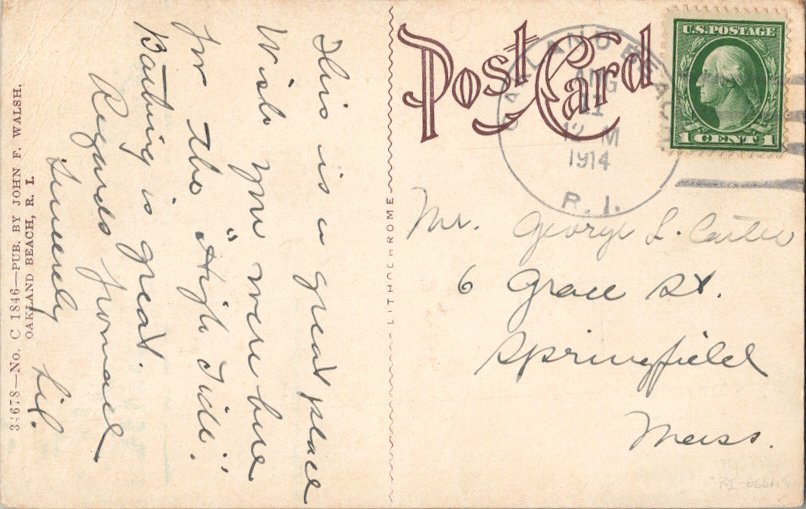 Post Card
OAKLAND BEACH
AUG
12 M
1914
R. I.
U.S. POSTAGE
1 CENT 1
This is a great place
Wish you were here
for the "High Tide".
Bathing is great.
Regards from all
Sincerely Lil.
34678—No. C 1846—PUB. BY JOHN F. WALSH,
OAKLAND BEACH, R. I.
LITHOCHROME
Mr. George L. Carter
6 Grace St.
Springfield
Mass.